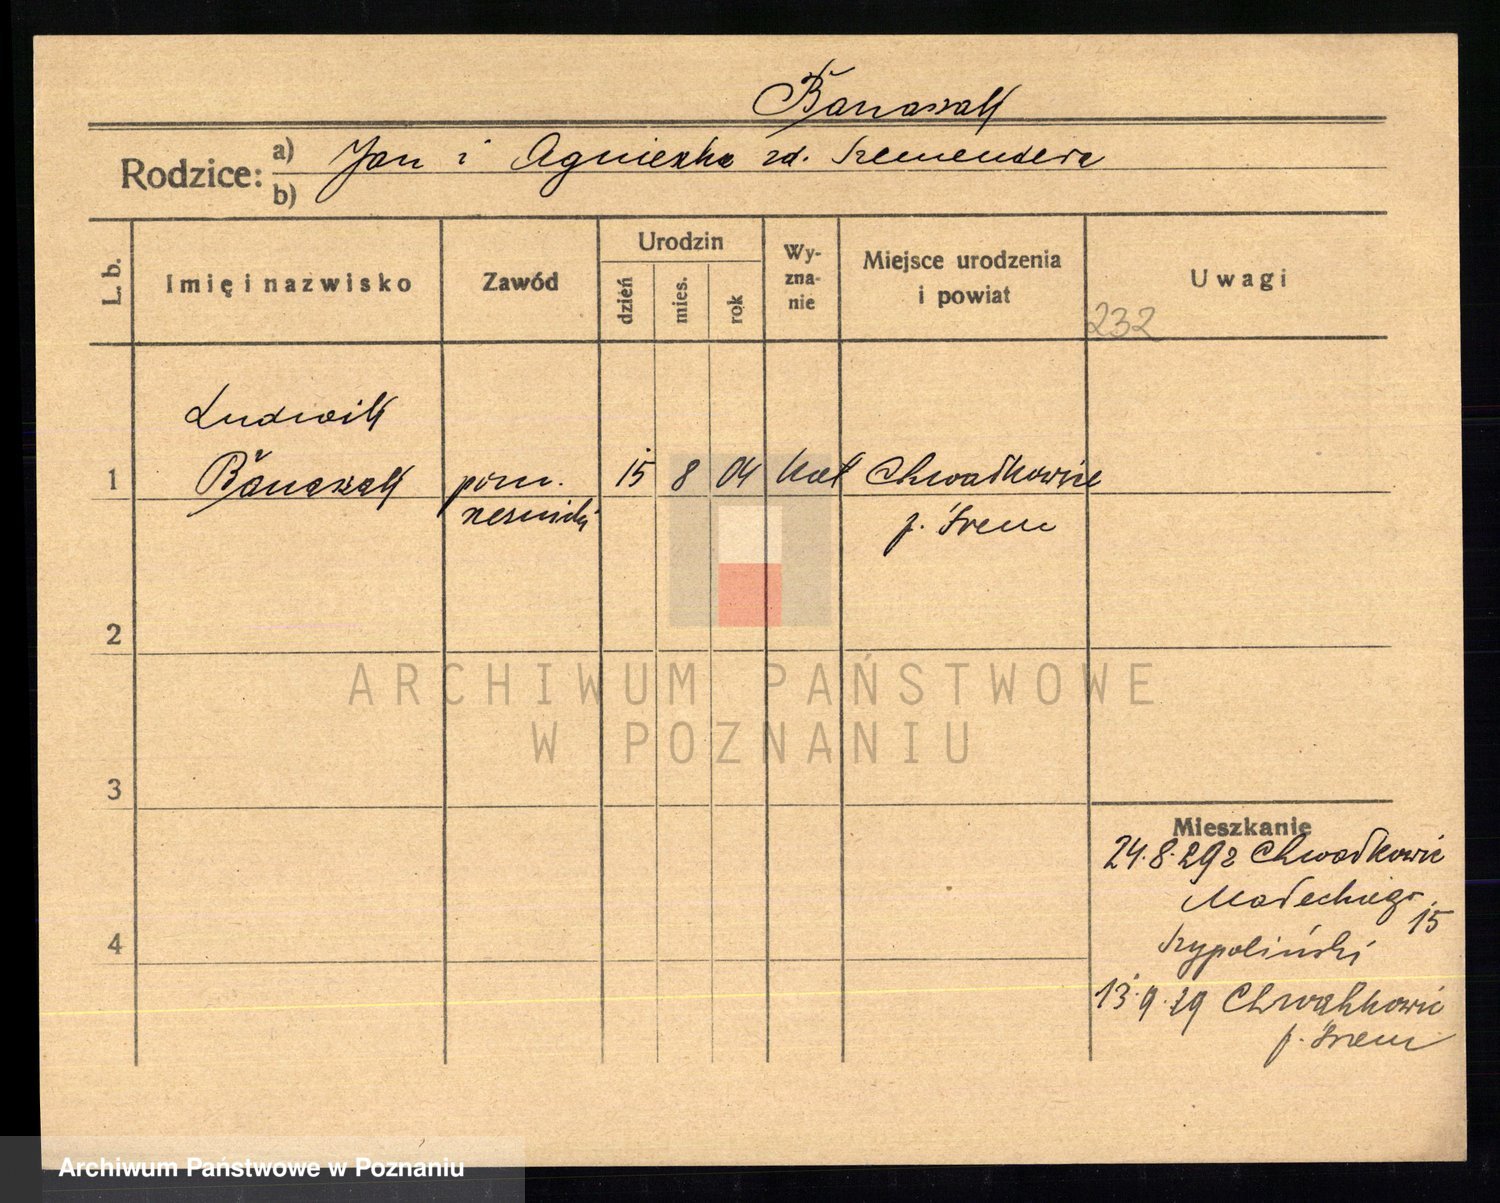 Banaszak
Rodzice: a) Jan i Agnieszka zd. Szemendera
b)
L. b.
Imię i nazwisko
Zawód
Urodzin
dzień
mies.
rok
Wy-
zna-
nie
Miejsce urodzenia
i powiat
Uwagi
232
Ludwik
1 Banaszak pom. 15 8 04 kat Chwałkowice
rzeźnicki p. Śrem
2
3
4
Mieszkanie
24.8.29 z Chwałkowic
Małeckiego 15
Szypoliński
13.9.29 Chwałkowic
p. Śrem
ARCHIWUM PAŃSTWOWE
W POZNANIU
Archiwum Państwowe w Poznaniu